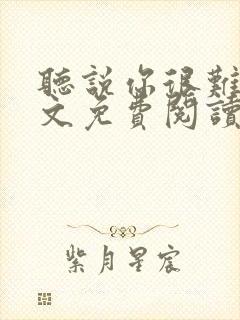 聽說你很難
文免費閱讀
紫月星宸